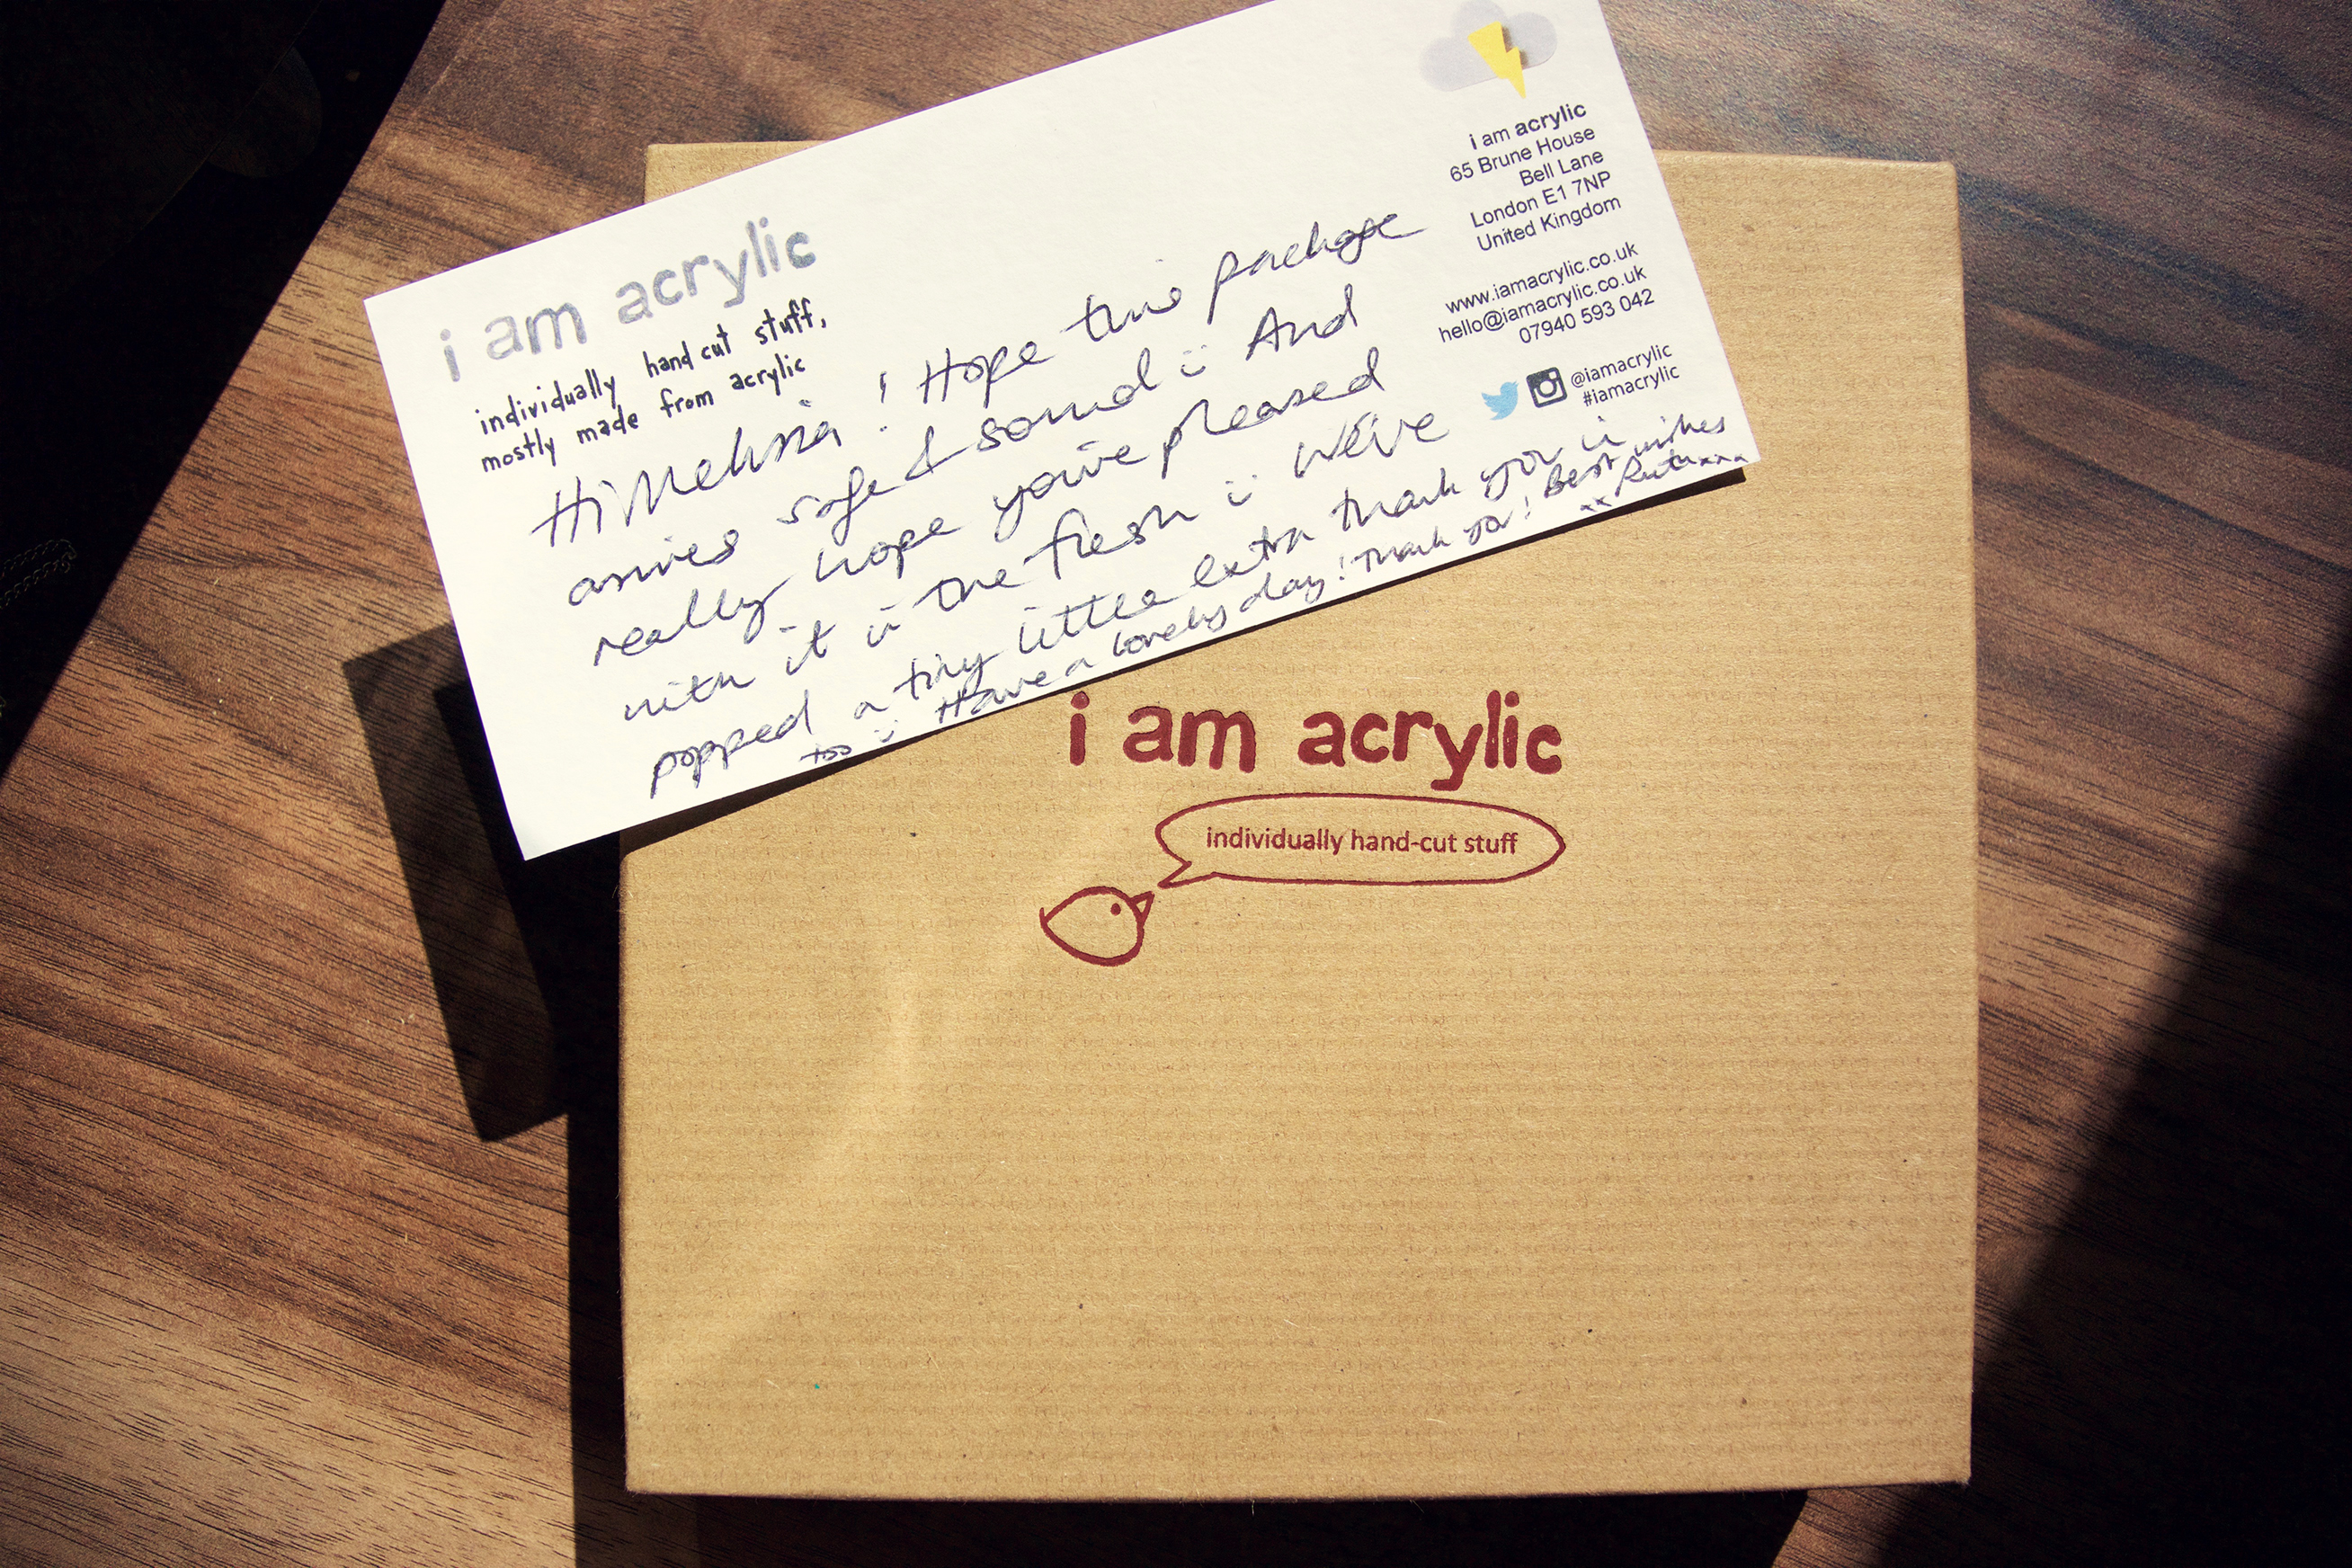 i am acrylic
individually hand cut stuff,
mostly made from acrylic
i am acrylic
65 Brune House
Bell Lane
London E1 7NP
United Kingdom
www.iamacrylic.co.uk
hello@iamacrylic.co.uk
07940 593 042
@iamacrylic
#iamacrylic
Hi Melissa! Hope this package
arrives safe & sound :) And
really hope you're pleased
with it in the flesh :) We've
popped a tiny little extra thank you in
too :) Have a lovely day! Thank you! Best wishes
xx Ruth xxx
i am acrylic
individually hand-cut stuff